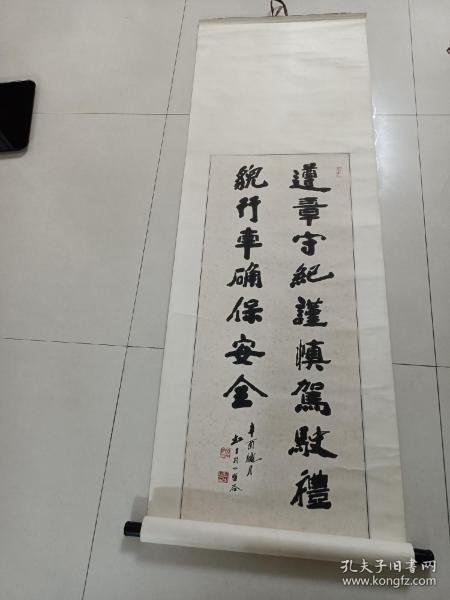 遵章守紀謹慎駕駛禮
貌行車確保安全
辛酉臘月
孔夫子旧书网
www.kongfz.com